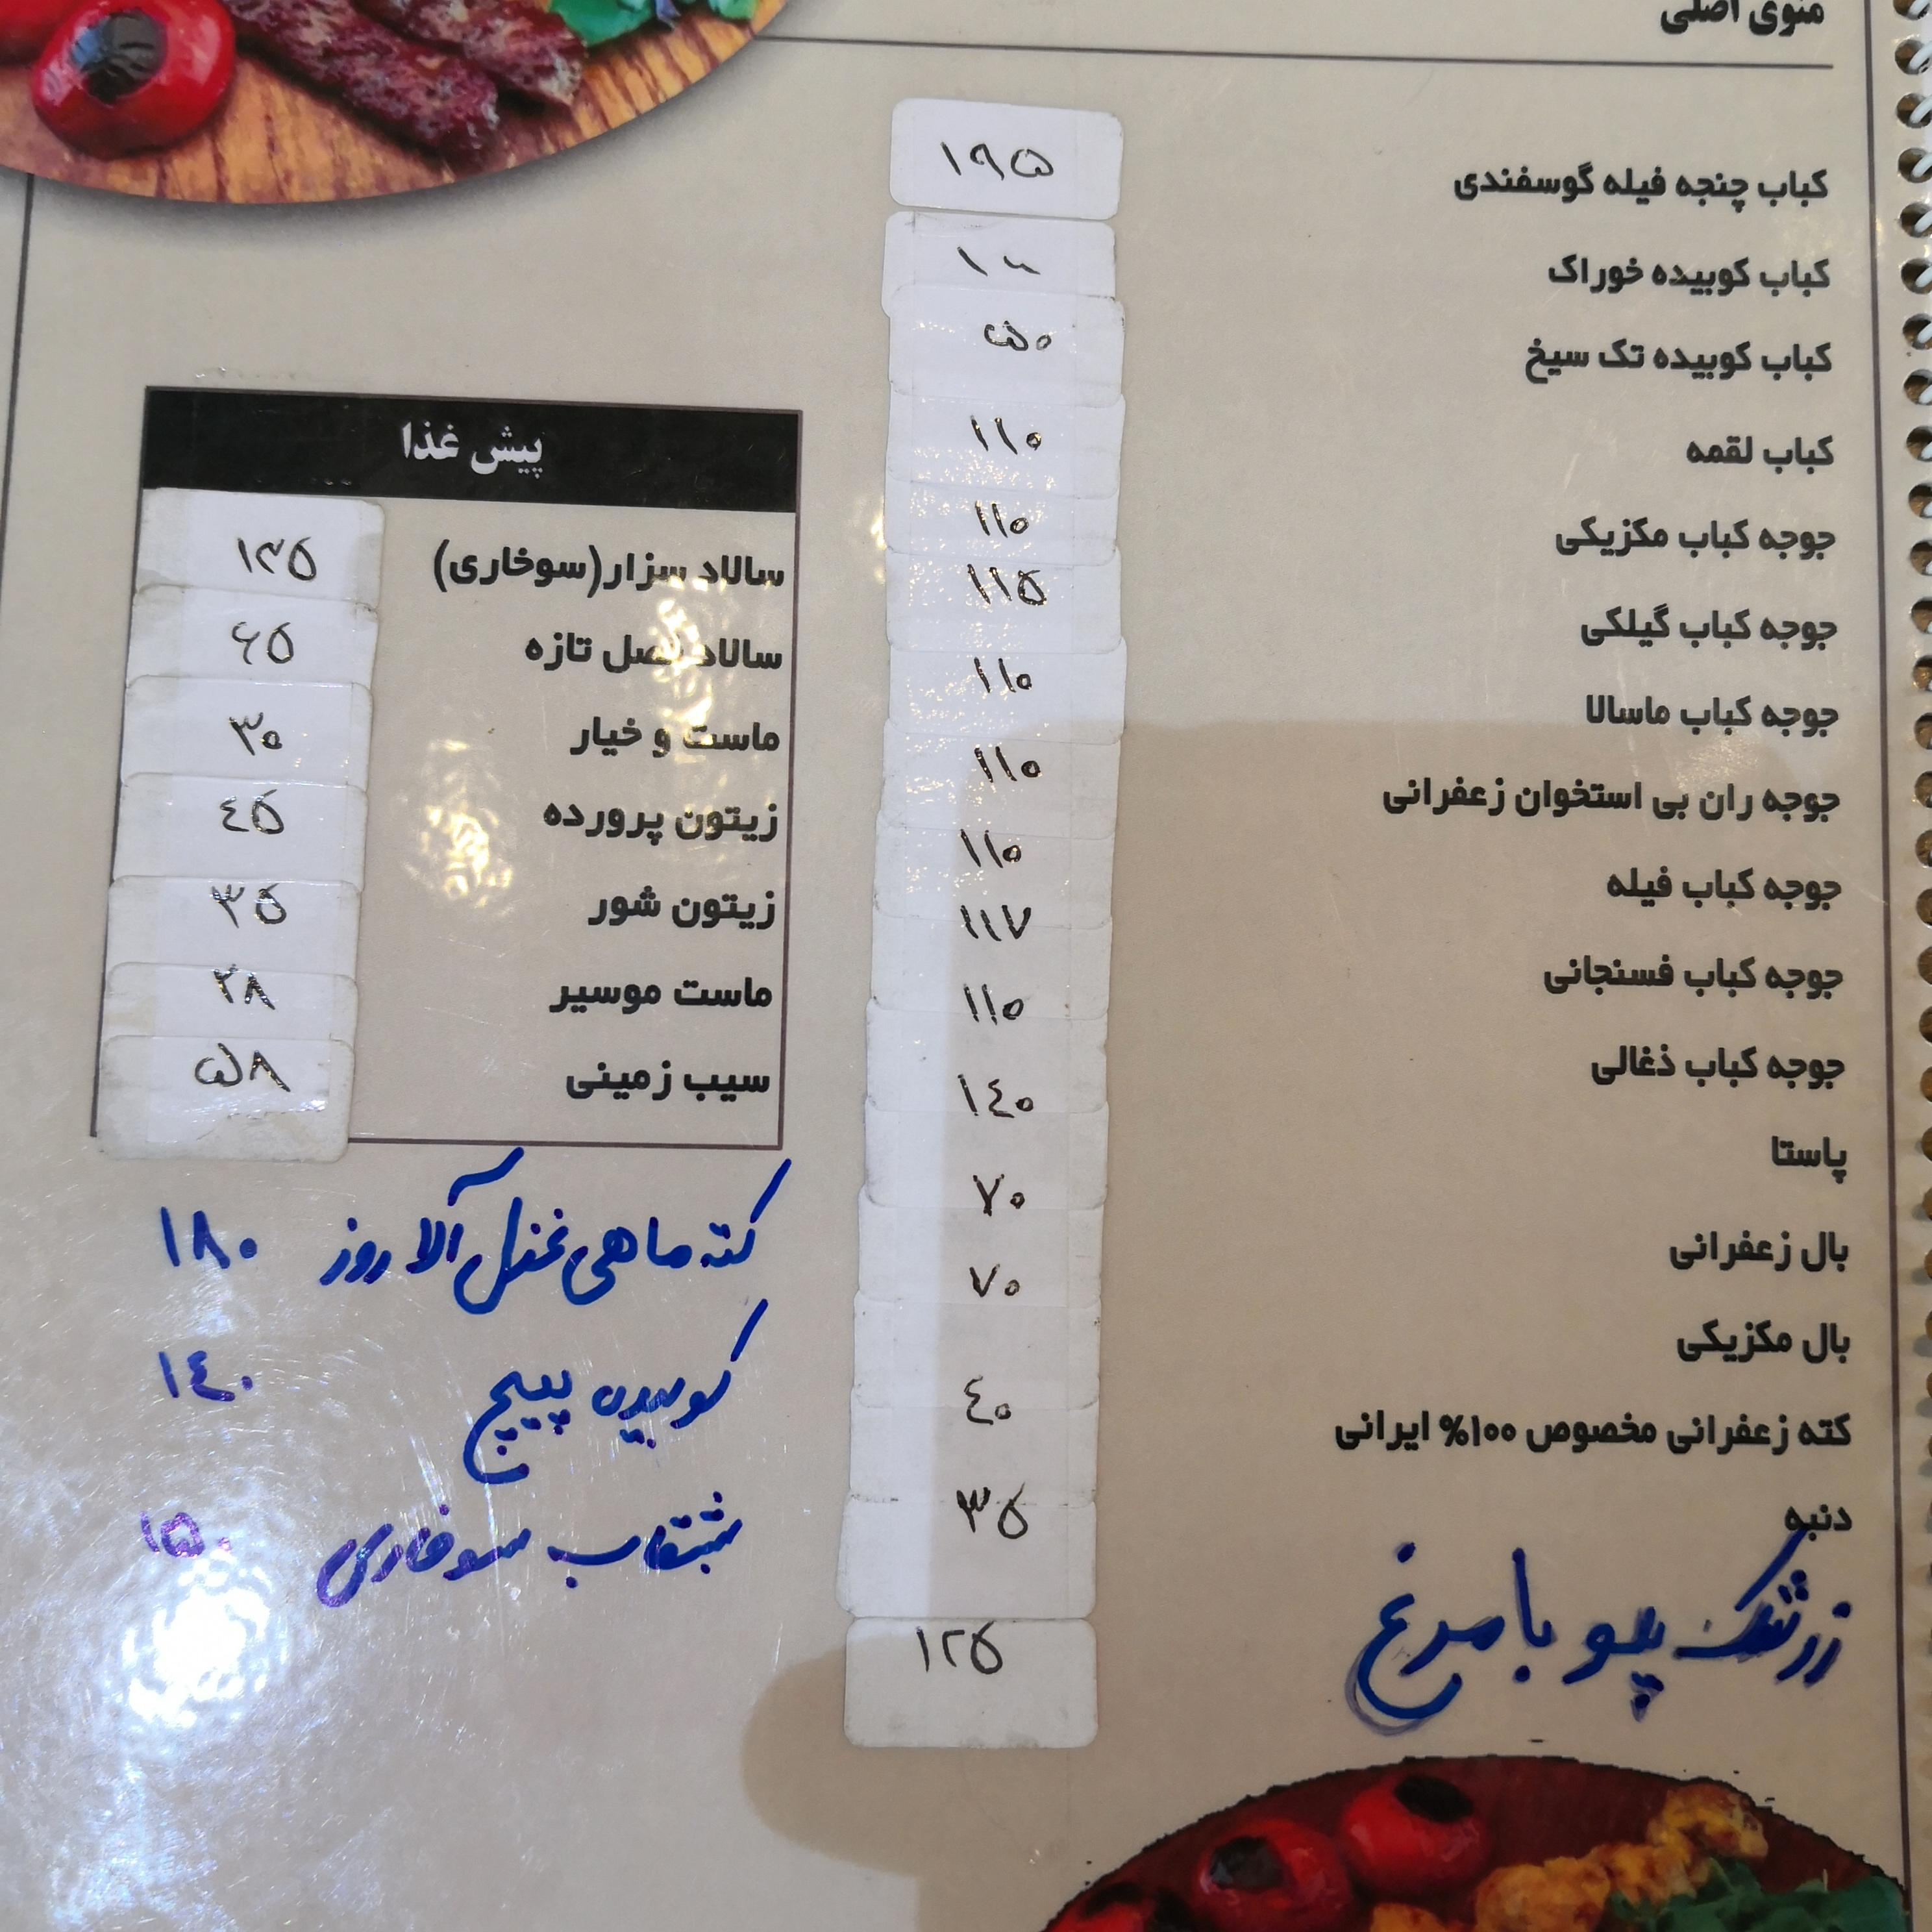 منوی اصلی
کباب چنجه فیله گوسفندی ۱۹۵
کباب کوبیده خوراک
کباب کوبیده تک سیخ ۵۰
کباب لقمه ۱۱۰
جوجه کباب مکزیکی ۱۱۰
جوجه کباب گیلکی ۱۱۵
جوجه کباب ماسالا ۱۱۰
جوجه ران بی استخوان زعفرانی ۱۱۰
جوجه کباب فیله ۱۱۰
جوجه کباب فسنجانی ۱۱۷
جوجه کباب ذغالی ۱۱۰
پاستا ۱٤۰
بال زعفرانی ۷۰
بال مکزیکی ۷۰
کته زعفرانی مخصوص ۱۰۰% ایرانی ٤۰
دنبه ۳۵
زرشک پلو با مرغ ۱۲۵
پیش غذا
سالاد سزار(سوخاری) ۱۳۵
سالاد فصل تازه ۶۵
ماست و خیار ۳۰
زیتون پرورده ٤۵
زیتون شور ۳۵
ماست موسیر ۲۸
سیب زمینی ۵۸
کته ماهی غزل آلا روز ۱۸۰
کوبیده پیچ ۱٤۰
بشقاب سوخاری ۱۵۰